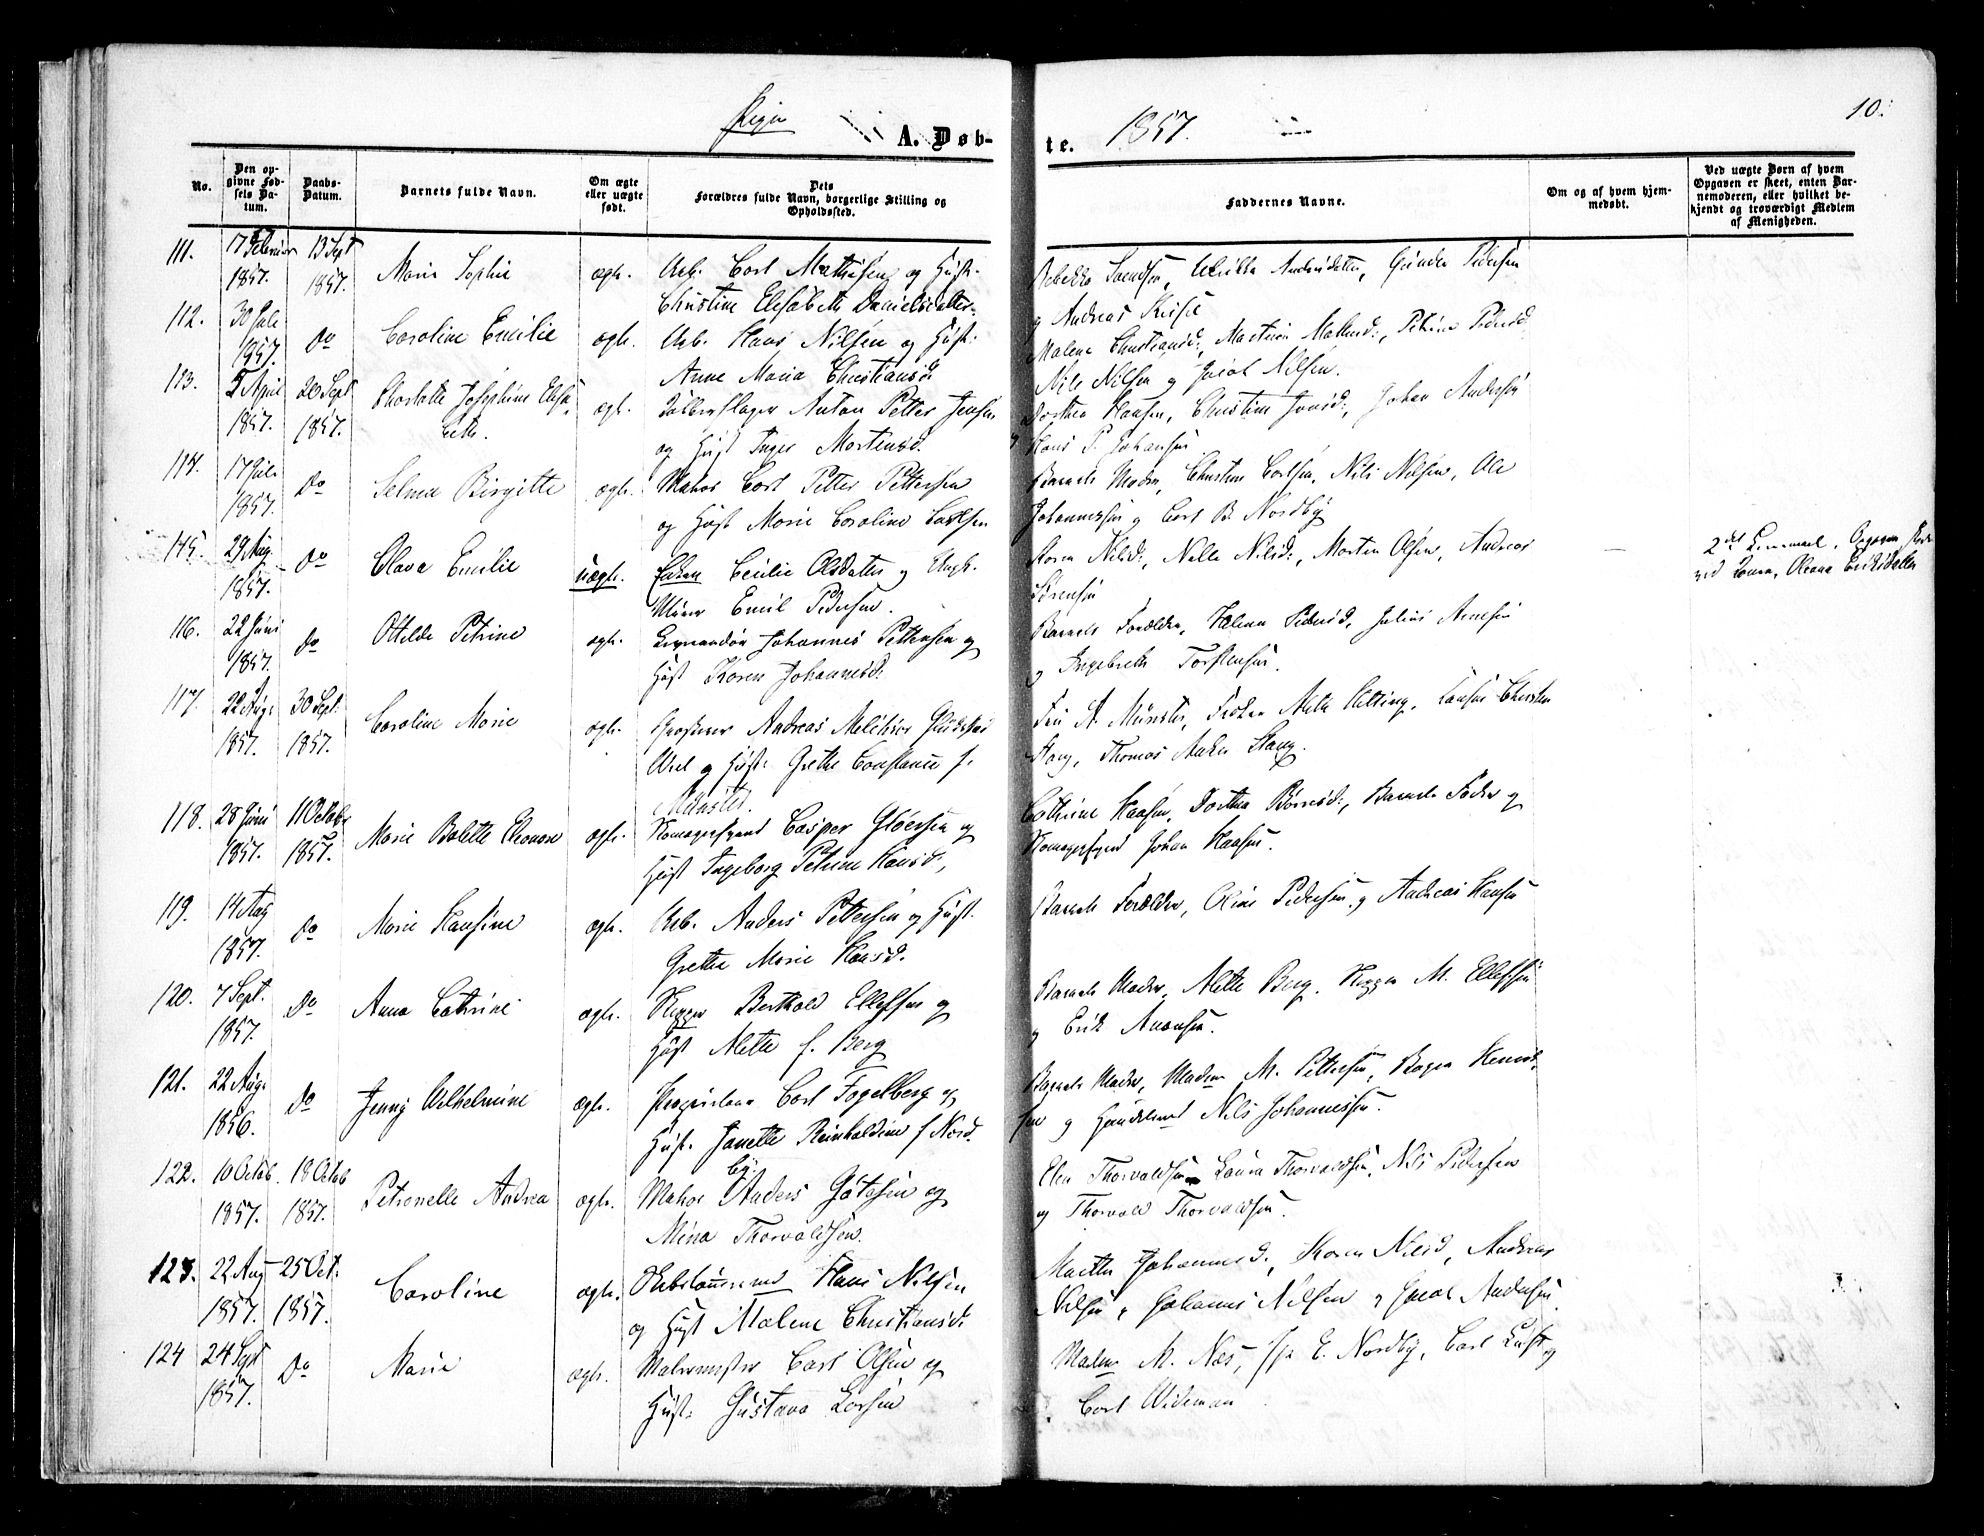 10.
Piger
A. Døb-
te. 1857.
No.
Den op-
givne Fød-
sels Da-
tum.
Daabs-
Datum.
Barnets fulde Navn.
Om ægte
eller uægte
født.
Dets
Forældres fulde Navn, borgerlige Stilling og
Opholdssted.
Faddernes Navne.
Om og af hvem hjem-
medøbt.
Ved uægte Børn af hvem
Opgaven er skeet, enten Bar-
nemoderen, eller hvilket be-
kjendt og troværdigt Medlem
af Menigheden.
111. 17 Februar 13 Sept
1857. 1857. Marie Sophie ægte. Arb. Carl Mathisen og Hust.
Christine Elisabeth Danielsdatter.
Rebekka Svendsen, Ulrikke Andersdatter, Gunder Pedersen
og Andreas
112. 30 Juli
1857. Do Caroline Emilie ægte. Arb. Hans Nilsen og Hust.
Anne Maria Christiansd.
Malene Christiansd:, Petrine Pedersd.
Nils Nilsen og Jacob Nilsen.
113. 5 April 20 Sept
1857. 1857. Charlotte Josephine Elisa-
beth. ægte. Anton Petter Jensen
og Hust Inger Mortensd.
Dorthea Hansen, Christine Jonsd:, Johan Andersen
og Hans P. Johansen
114. 17 Juli
1857. Do Selma Birgitte ægte. Matros Carl Petter Pettersen
og Hust Marie Caroline Carlsen
Barnets Moder, Christine Carlsen, Nils Nilsen, Ole
Johannessen og Carl B. Nordby
115. 29 Aug.
1857. Do Olava Emilie uægte. Pigen Cecilie Olsdatter og Ungk.
Murer Emil Pedersen.
Karen Nilsd:, Nille Nilsd:, Morten Olsen, Andreas
Sørensen
—
2det Leiermaal. Opgaven skede
ved Konen, Oleana Eriksdatter
116. 22 Juni
1857. Do Otilde Petrine ægte. Johannes Pettersen og
Hust Karen Johannesd.
Barnets Forældre, Helena Pedersd, Julius Arnesen
og Ingebreth Torstensen.
117. 22 Aug. 30 Sept.
1857. 1857. Caroline Marie ægte. Grosserer Andreas Melchior Glückstad
Wiel og Hust. Grethe Constance f.
Münster.
Fru A. Münster, Frøken Mette Hetting, Christen
Stang, Thomas Anker Stang.
118. 28 Juni 11 October
1857. 1857. Marie Bolette Eleonore ægte. Skomagersvend Casper Gloersen og
Hust Ingeborg Petrine Hansd.
Cathrine Hansen, Dorthea Børresd:, Barnets Fader og
Skomagersvend Johan Hansen.
119. 14 Aug
1857. Do Marie Hansine ægte. Arb. Anders Pettersen og Hust.
Grethe Marie Hansd.
Barnets Forældre, Oline Pedersen og Andreas Hansen
120. 7 Sept.
1857. Do Anna Catrine ægte. Skipper Berthold Ellefsen og
Hust Alette f. Berg
Barnets Moder, Alette Berg, Skipper M. Ellefsen
og Erik Amonsen.
121. 22 Aug.
1856. Do Jenny Wilhelmine ægte. Carl Fogelberg og
Hust. Janette Reinholdine f Nord-
by.
Barnets Moder, Madam M. Pettersen, Bager
sen og Handelsmd Nils Johannessen.
122. 10 Octob. 18 Octob
1857. 1857. Petronelle Andrea ægte. Matros Anders Götesen og
Mina Thorvaldsen.
Elen Thorvaldsen Laura Thorvaldsen, Nils Pedersen
og Thorvald Thorvaldsen.
123. 22 Aug 25 Oct.
1857. 1857. Caroline ægte. Arbeidsmand Hans Nilsen
og Hust Malene Christiansd.
Marthe Johannesd., Karen Nilsd, Andreas
Nilsen, Johannes Nilsen og Jacob Andersen.
124 24 Sept
1857. Do Marie ægte. Malermester Carl Olsen og
Hust. Gustava Larsen
Madm M. Næs, E. Nordby, Carl og
Carl Wideman